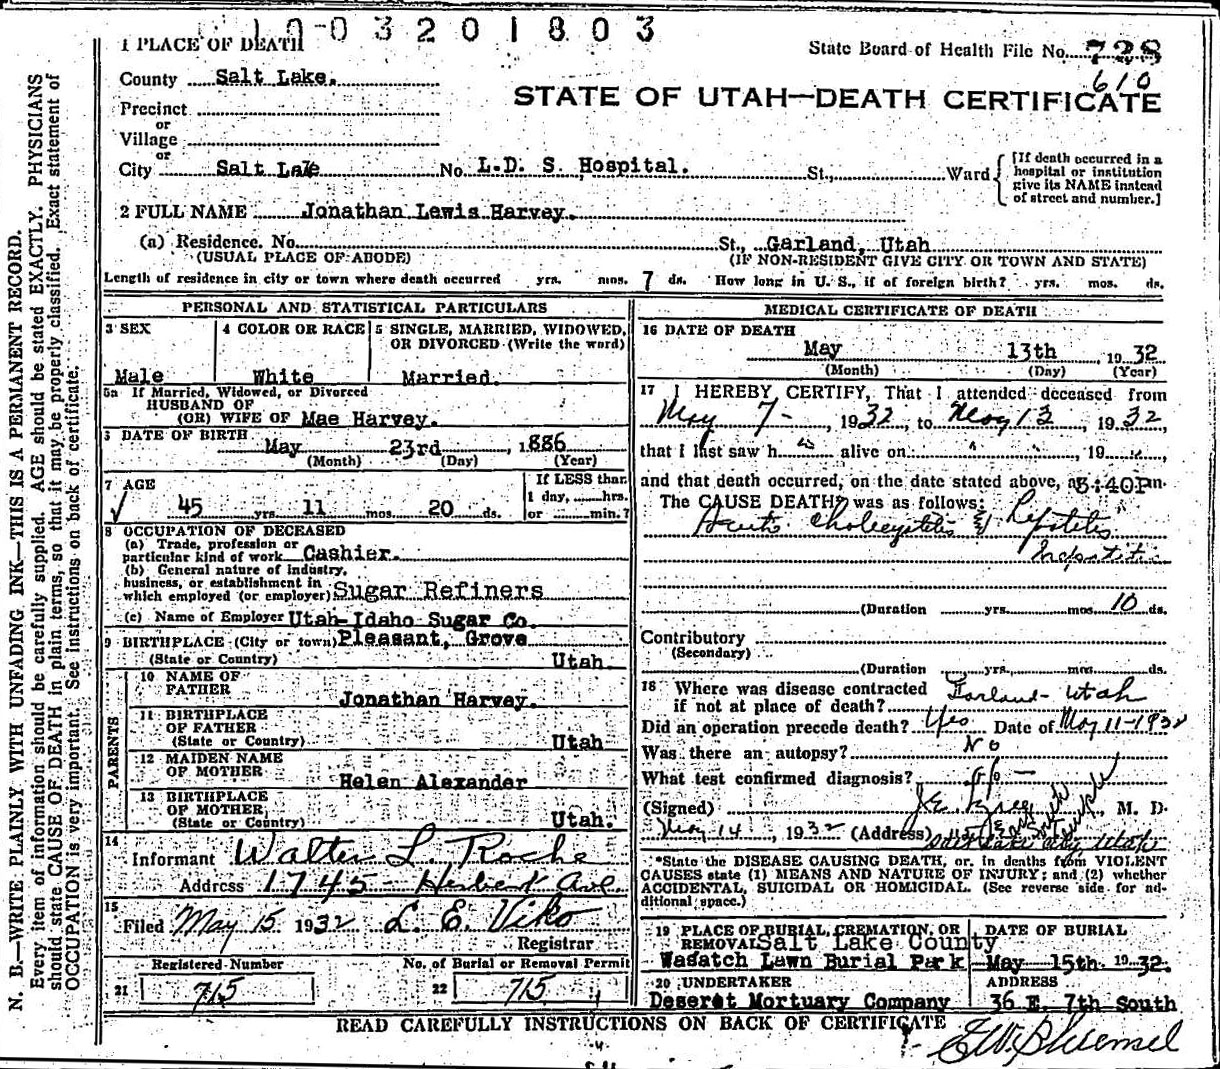 10-03201803
1 PLACE OF DEATH
State Board of Health File No. 728
610
County Salt Lake.
STATE OF UTAH—DEATH CERTIFICATE
Precinct
or
Village
or
City Salt Lake No. L.D. S. Hospital. St., Ward
[If death occurred in a hospital or institution give its NAME instead of street and number.]
2 FULL NAME Jonathan Lewis Harvey.
(a) Residence. No. St., Garland, Utah
(USUAL PLACE OF ABODE) (IF NON-RESIDENT GIVE CITY OR TOWN AND STATE)
Length of residence in city or town where death occurred yrs. mos. 7 ds. How long in U. S., if of foreign birth? yrs. mos. ds.
PERSONAL AND STATISTICAL PARTICULARS
3 SEX
Male
4 COLOR OR RACE
White
5 SINGLE, MARRIED, WIDOWED, OR DIVORCED (Write the word)
Married.
5a If Married, Widowed, or Divorced
HUSBAND OF
(OR) WIFE OF Mae Harvey.
DATE OF BIRTH
May 23rd 1886
(Month) (Day) (Year)
7 AGE
45 yrs. 11 mos. 20 ds.
If LESS than
1 day, hrs.
or min.?
8 OCCUPATION OF DECEASED
(a) Trade, profession or
particular kind of work Cashier.
(b) General nature of industry,
business, or establishment in
which employed (or employer) Sugar Refiners
(c) Name of Employer Utah-Idaho Sugar Co.
9 BIRTHPLACE (City or town) Pleasant, Grove
(State or Country) Utah.
PARENTS
10 NAME OF FATHER
Jonathan Harvey.
11 BIRTHPLACE OF FATHER
(State or Country) Utah
12 MAIDEN NAME OF MOTHER
Helen Alexander
13 BIRTHPLACE OF MOTHER
(State or Country) Utah.
14
Informant Walter L. Roche
Address 1745 - Herbert Ave.
15
Filed May 15 1932 L. E. Viko
Registrar
Registered Number No. of Burial or Removal Permit
21 715 22 715
MEDICAL CERTIFICATE OF DEATH
16 DATE OF DEATH
May 13th 1932
(Month) (Day) (Year)
17 I HEREBY CERTIFY, That I attended deceased from
May 7 - 1932, to May 13, 1932,
that I last saw h alive on " ", 19 ",
and that death occurred, on the date stated above, at 5:40P m.
The CAUSE DEATH* was as follows:
Acute Cholecystitis &
(Duration yrs. mos. 10 ds.
Contributory
(Secondary)
(Duration yrs. mos. ds.
18 Where was disease contracted
if not at place of death? Garland - Utah
Did an operation precede death? Yes Date of May 11 - 1932
Was there an autopsy? No
What test confirmed diagnosis? op -
(Signed) J.E. M. D.
May 14, 1932 (Address) East South Temple
Salt Lake City Utah
*State the DISEASE CAUSING DEATH, or, in deaths from VIOLENT
CAUSES state (1) MEANS AND NATURE OF INJURY; and (2) whether
ACCIDENTAL, SUICIDAL OR HOMICIDAL. (See reverse side for ad-
ditional space.)
19 PLACE OF BURIAL, CREMATION, OR
REMOVAL Salt Lake County
Wasatch Lawn Burial Park
DATE OF BURIAL
May 15th 1932.
20 UNDERTAKER
Deseret Mortuary Company
ADDRESS
36 E. 7th South
READ CAREFULLY INSTRUCTIONS ON BACK OF CERTIFICATE
N. B.—WRITE PLAINLY WITH UNFADING INK—THIS IS A PERMANENT RECORD.
Every item of information should be carefully supplied. AGE should be stated EXACTLY. PHYSICIANS
should state CAUSE OF DEATH in plain terms, so that it may be properly classified. Exact statement of
OCCUPATION is very important. See instructions on back of certificate.